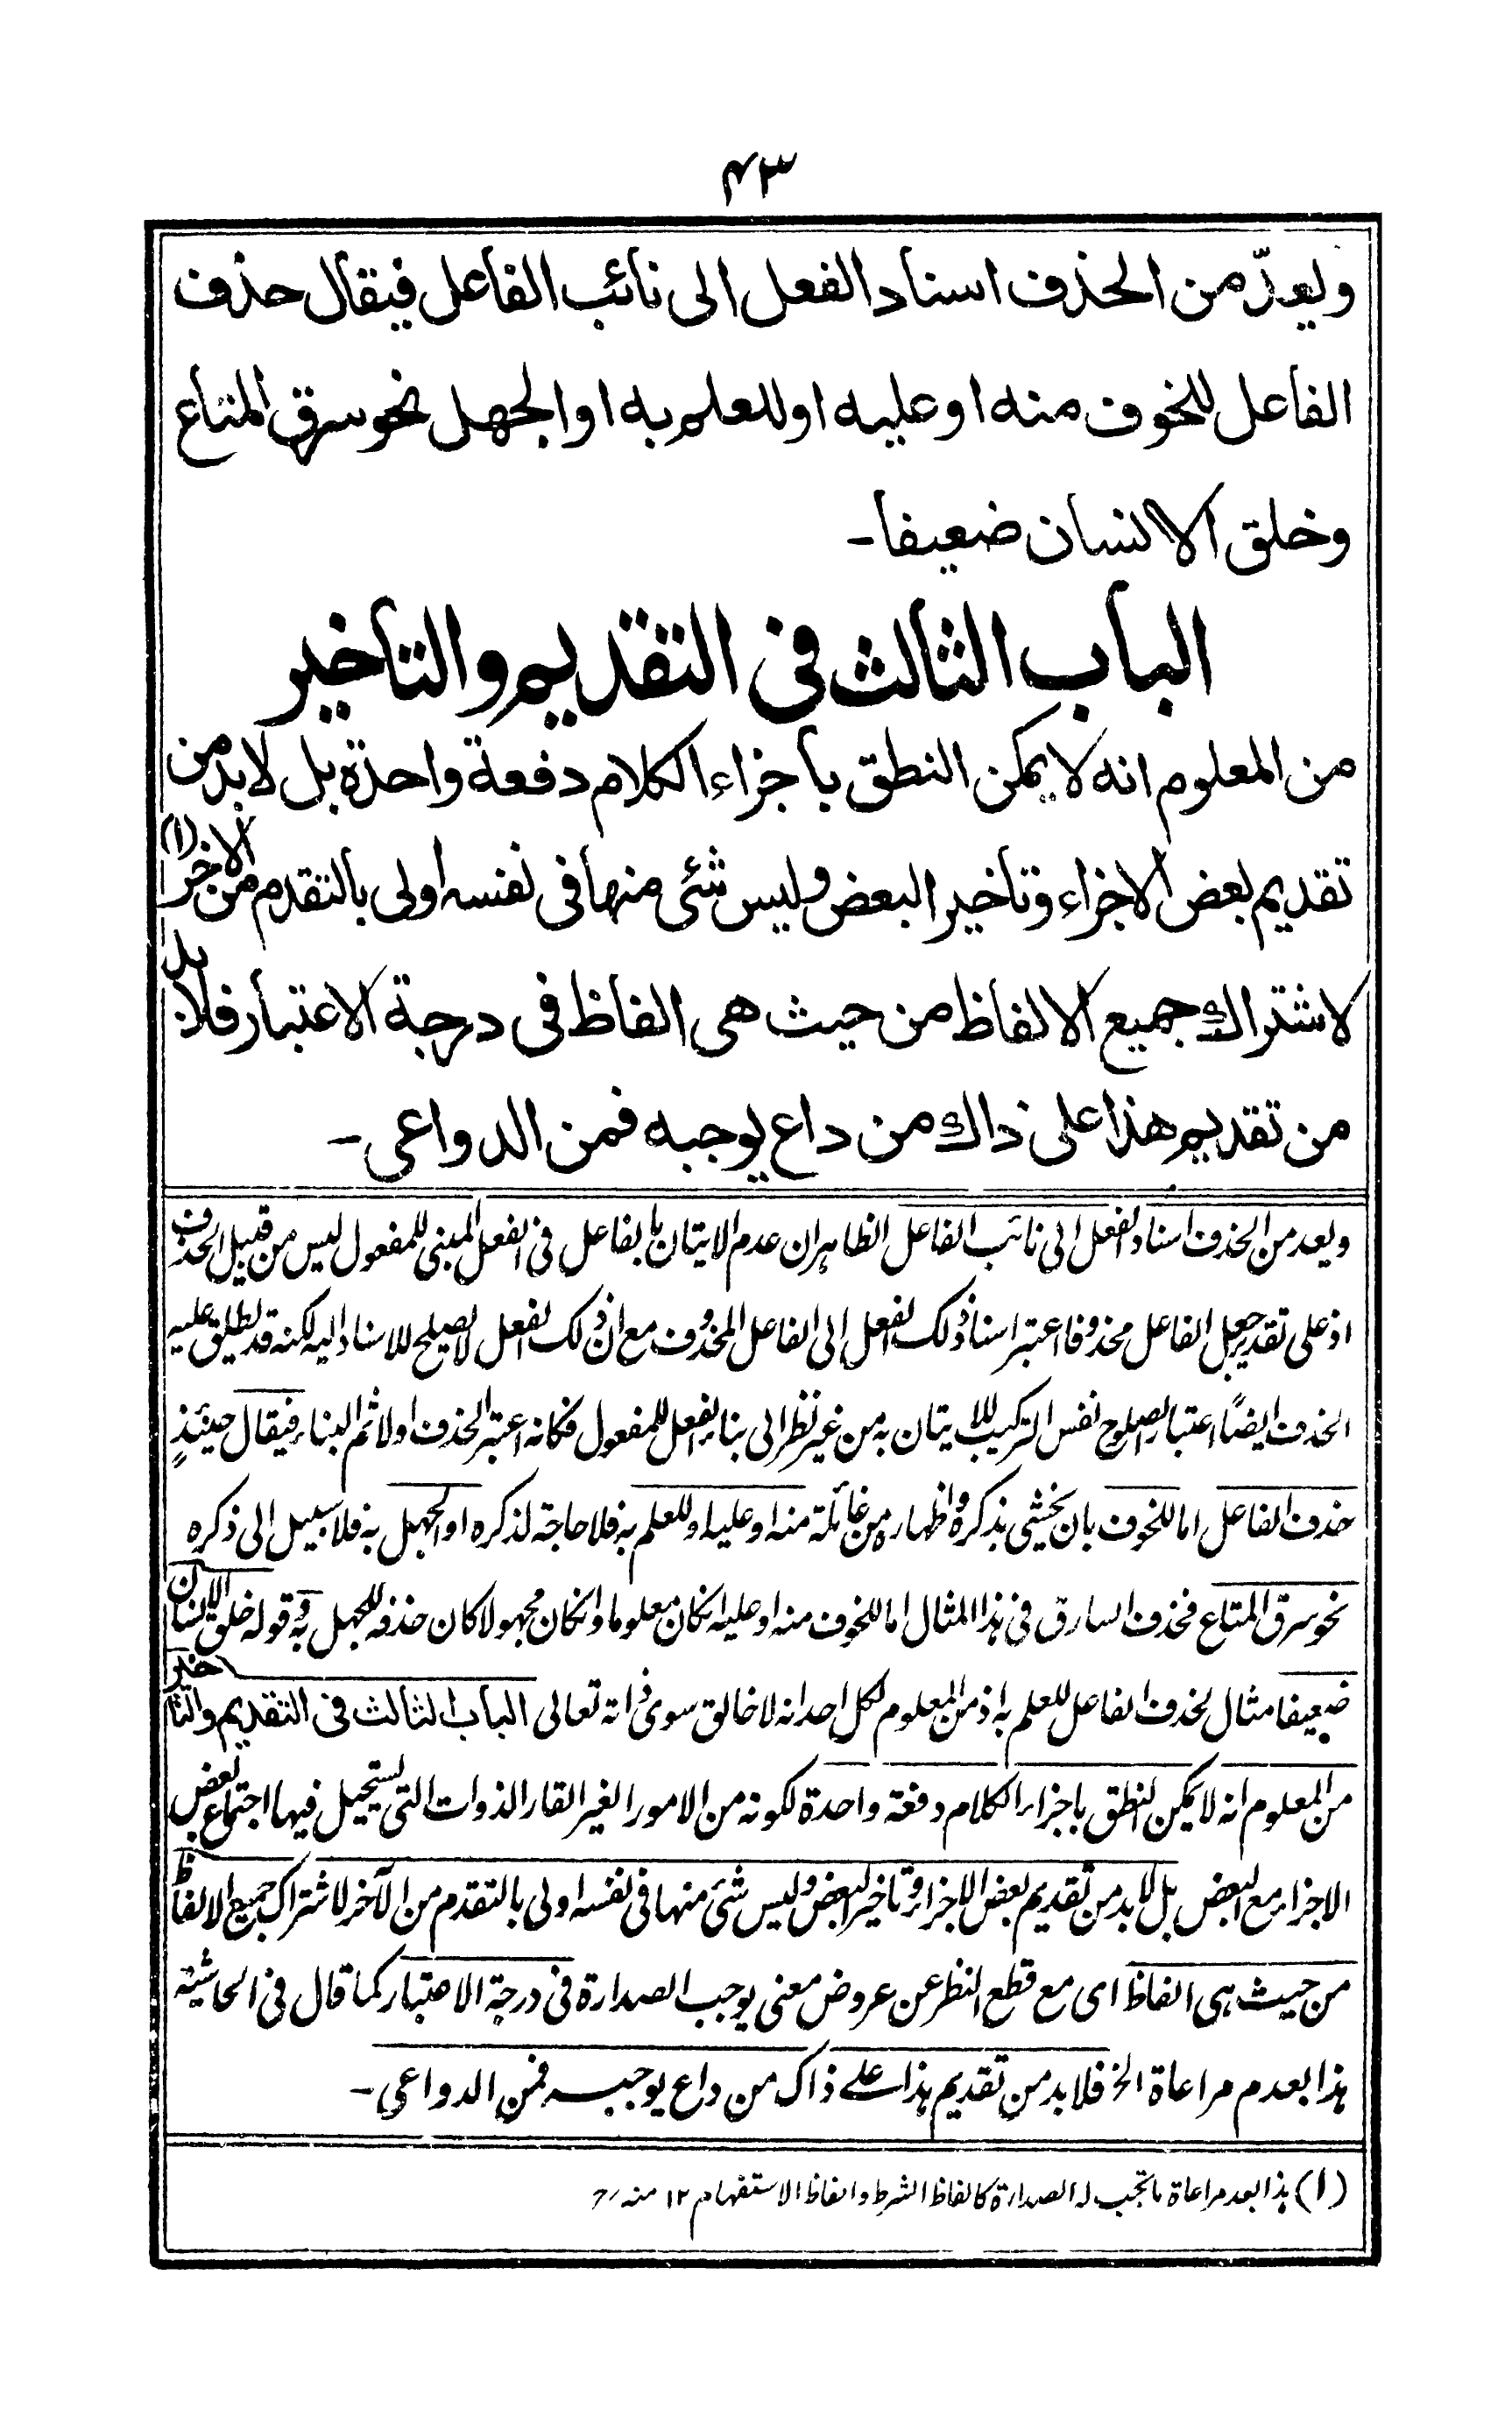 ۴۳
ويعدّ من الحذف اسناد الفعل الى نائب الفاعل فيقال حذف
الفاعل للخوف منه او عليه او للعلم به او الجهل نحو سرق المتاع
وخلق الانسان ضعيفا-
الباب الثالث فى التقديم والتأخير
من المعلوم انه لا يمكن النطق بأجزاء الكلام دفعة واحدة بل لا بد من
تقديم بعض الاجزاء وتأخير البعض وليس شئ منها فى نفسه اولى بالتقدم من الاخر (۱)
لاشتراك جميع الالفاظ من حيث هى الفاظ فى درجة الاعتبار فلا بد
من تقديم هذا على ذاك من داع يوجبه فمن الدواعى-
ويعد من الحذف اسناد الفعل الى نائب الفاعل الظاهر ان عدم الاتيان بالفاعل فى الفعل المبنى للمفعول ليس من قبيل الحذف
اذ على تقدير جعل الفاعل محذوفا اعتبر اسناد ذلك الفعل الى الفاعل المحذوف مع ان ذلك الفعل لا يصلح للاسناد اليه لكنه قد يطلق عليه
الحذف ايضًا اعتبار الصلوح نفس التركيب للاتيان به من غير نظر الى بناء الفعل للمفعول فكانه اعتبر الحذف اولا ثم البناء فيقال حينئذٍ
حذف الفاعل اما للخوف بان يخشى بذكره و اظهاره من غائلة منه او عليه او للعلم به فلا حاجة لذكره او الجهل به فلا سبيل الى ذكره
نحو سرق المتاع فحذف السارق فى هذا المثال اما للخوف منه او عليه انكان معلوما وانكان مجهولا كان حذفه للجهل به وقوله خلق الانسان
ضعيفا مثال لحذف الفاعل للعلم به اذ من المعلوم لكل احد انه لا خالق سوى ذاته تعالى الباب الثالث فى التقديم والتاخير
من المعلوم انه لا يمكن النطق باجزاء الكلام دفعة واحدة لكونه من الامور الغير القار الذوات التى يستحيل فيها اجتماع بعض
الاجزاء مع البعض بل لا بد من تقديم بعض الاجزاء وتاخير البعض وليس شئ منها فى نفسه اولى بالتقدم من الآخر لاشتراك جميع الالفاظ
من حيث هى الفاظ اى مع قطع النظر عن عروض معنى يوجب الصدارة فى درجة الاعتبار كما قال فى الحاشية
هذا بعدم مراعاة الخ فلا بد من تقديم هذا على ذاك من داع يوجبه فمن الدواعى-
(۱) هذا بعد مراعاة ما تجب له الصدارة كالفاظ الشرط والفاظ الاستفهام ۱۲ منه